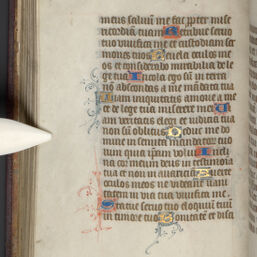 meus saluum me fac propter mise
ricordiam tuam Retribue seruo
tuo viuifica me et custodiam ser
mones tuos Reuela oculos me
os et considerabo mirabilia de le
ge tua Incola ego sum in terra
non abscondas a me mandata tua
Viam iniquitatis amoue a me
et de lege tua miserere mei
viam veritatis elegi et iudicia tua
non sum oblitus Deduc me do
mine in semita mandatorum tuo
rum quia ipsam volui Inclina
cor meum deus in testimonia
tua et non in auariciam Auerte
oculos meos ne videant vani
tatem in via tua viuifica me
Statue seruo tuo eloquium tuum
in timore tuo